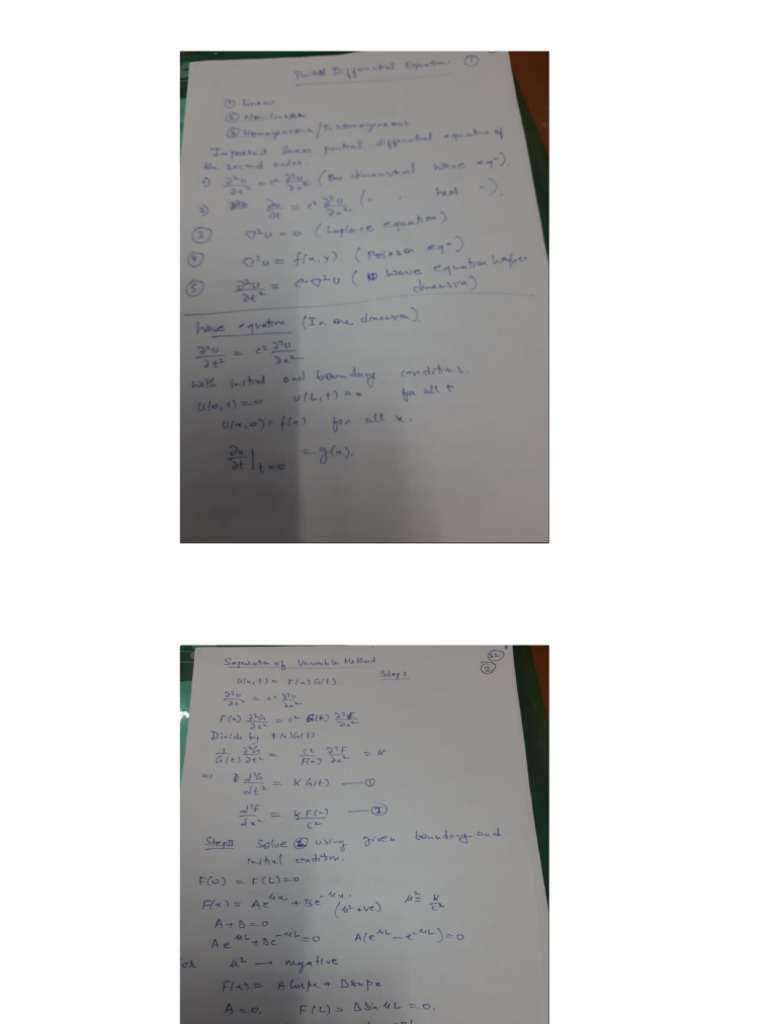 Partial Differential Equations ①
① Linear
② Non-linear
③ Homogeneous / In homogeneous
Important linear partial differential equation of
the second order.
1) ∂²u/∂t² = c² ∂²u/∂x² (One dimensional wave eqⁿ).
2) ∂u/∂t = c² ∂²u/∂x² ( " " heat " ).
③ ∇²u = 0 (Laplace equation)
④ ∇²u = f(x,y) (Poisson eqⁿ)
⑤ ∂²u/∂t² = c²∇²u ( Wave equation higher
dimension)
Wave equation (In one dimension)
∂²u/∂t² = c² ∂²u/∂x²
With initial and boundary conditions.
u(0,t) = 0 u(L,t) = 0 for all t
u(x,0) = f(x) for all x.
∂u/∂t |t=0 = g(x).
②
Separation of Variable Method
u(x,t) = F(x)G(t). Step I
∂²u/∂t² = c² ∂²u/∂x²
F(x) ∂²G/∂t² = c² G(t) ∂²F/∂x²
Divide by F(x)G(t)
1/G(t) ∂²G/∂t² = c²/F(x) ∂²F/∂x² = K
⇒ d²G/dt² = K G(t) — ①
d²F/dx² = K F(x)/c² — ②
Step II Solve ② using given boundary and
initial condition.
F(0) = F(L) = 0
F(x) = Ae^μx + Be^-μx. (μ² +ve) μ² = K/c²
A + B = 0
Ae^μL + Be^-μL = 0 A(e^μL − e^-μL) = 0
for μ² → negative
F(x) = A cos px + B sin px
A = 0, F(L) = B sin μL = 0.